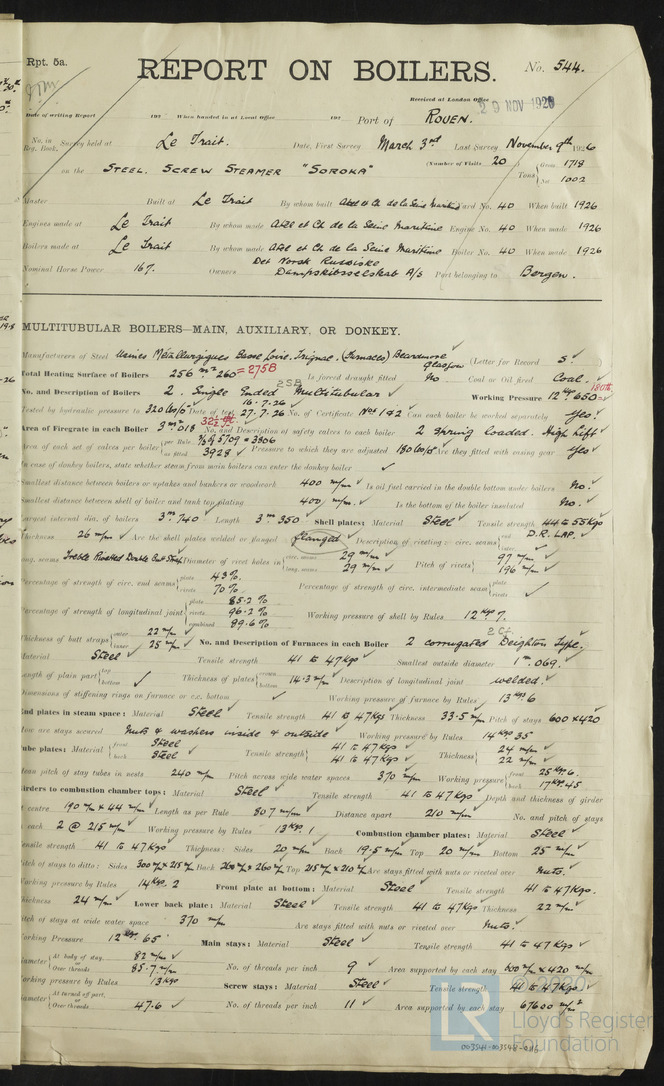 Rpt. 5a.
REPORT ON BOILERS.
No. 544.
Received at London Office 29 NOV 1926
Date of writing Report 192 When handed in at Local Office 192 Port of ROUEN.
No. in Reg. Book. Survey held at Le Trait. Date, First Survey March 3rd Last Survey November 9th 1926
(Number of Visits 20)
on the STEEL. SCREW STEAMER "SOROKA" Tons { Gross 1718
Net 1002
Master Built at Le Trait By whom built Atel et Ch de la Seine Maritime Yard No. 40 When built 1926
Engines made at Le Trait By whom made Atel et Ch de la Seine Maritime Engine No. 40 When made 1926
Boilers made at Le Trait By whom made Atel et Ch de la Seine Maritime Boiler No. 40 When made 1926
Nominal Horse Power 167. Owners Det Norsk Russiske Dampskibsselskab A/S Port belonging to Bergen.
MULTITUBULAR BOILERS—MAIN, AUXILIARY, OR DONKEY.
Manufacturers of Steel Usines Métallurgiques Basse Loire. Trignac. (Furnaces) Beardmore Glasgow (Letter for Record S.)
Total Heating Surface of Boilers 256 m² 260 = 2758 Is forced draught fitted No Coal or Oil fired Coal.
No. and Description of Boilers 2. Single Ended Multitubular 2SB Working Pressure 12 Kgs 650 = 180lb
Tested by hydraulic pressure to 320 lbs/□ Date of test 16.7.26 27.7.26 No. of Certificate Nos 1&2 Can each boiler be worked separately Yes!
Area of Firegrate in each Boiler 3 m² 018 No. and Description of safety valves to each boiler 2 spring loaded. High Lift
Area of each set of valves per boiler { per Rule 3806
as fitted 3928 Pressure to which they are adjusted 180 lbs/□ Are they fitted with easing gear Yes
In case of donkey boilers, state whether steam from main boilers can enter the donkey boiler
Smallest distance between boilers or uptakes and bunkers or woodwork 400 m/m Is oil fuel carried in the double bottom under boilers No.
Smallest distance between shell of boiler and tank top plating 400 m/m. Is the bottom of the boiler insulated No.
Largest internal dia. of boilers 3m 740 Length 3m 350 Shell plates: Material Steel Tensile strength 44 to 55 Kgs
Thickness 26 m/m Are the shell plates welded or flanged flanged Description of riveting: circ. seams { end D.R. LAP.
long. seams Treble Riveted Double Butt Strap Diameter of rivet holes in { circ. seams 29 m/m
long. seams 29 m/m Pitch of rivets { 97 m/m
196 m/m
Percentage of strength of circ. end seams { plate 43%
rivets 70% Percentage of strength of circ. intermediate seam { plate
rivets
Percentage of strength of longitudinal joint { plate 85.2%
rivets 96.2%
combined 89.6% Working pressure of shell by Rules 12 Kgs 7.
Thickness of butt straps { outer 22 m/m
inner 25 m/m No. and Description of Furnaces in each Boiler 2 corrugated Deighton Type.
Material Steel Tensile strength 41 to 47 Kgs Smallest outside diameter 1m.069.
Length of plain part { top
bottom Thickness of plates { crown
bottom 14.3 m/m Description of longitudinal joint welded.
Dimensions of stiffening rings on furnace or c.c. bottom Working pressure of furnace by Rules 13 Kgs 6
End plates in steam space: Material Steel Tensile strength 41 to 47 Kgs Thickness 33.5 m/m Pitch of stays 600 x 420
How are stays secured Nuts & washers inside & outside Working pressure by Rules 14 Kgs 35
Tube plates: Material { front Steel
back Steel Tensile strength { 41 to 47 Kgs
41 to 47 Kgs Thickness { 24 m/m
22 m/m
Mean pitch of stay tubes in nests 240 m/m Pitch across wide water spaces 370 m/m Working pressure { front 25 Kgs 6.
back 17 Kgs 45
Girders to combustion chamber tops: Material Steel Tensile strength 41 to 47 Kgs Depth and thickness of girder
at centre 190 m/m x 44 m/m Length as per Rule 807 m/m Distance apart 210 m/m No. and pitch of stays
in each 2 @ 215 m/m Working pressure by Rules 13 Kgs 1 Combustion chamber plates: Material Steel
Tensile strength 41 to 47 Kgs Thickness: Sides 20 m/m Back 19.5 m/m Top 20 m/m Bottom 25 m/m
Pitch of stays to ditto: Sides 300 m/m x 215 m/m Back 260 m/m x 260 m/m Top 215 m/m x 210 m/m Are stays fitted with nuts or riveted over Nuts.
Working pressure by Rules 14 Kgs. 2 Front plate at bottom: Material Steel Tensile strength 41 to 47 Kgs.
Thickness 24 m/m Lower back plate: Material Steel Tensile strength 41 to 47 Kgs Thickness 22 m/m
Pitch of stays at wide water space 370 m/m Are stays fitted with nuts or riveted over Nuts.
Working Pressure 12 Kgs. 65 Main stays: Material Steel Tensile strength 41 to 47 Kgs
Diameter { At body of stay, 82 m/m
or Over threads 85.7 m/m No. of threads per inch 9 Area supported by each stay 600 m/m x 420 m/m
Working pressure by Rules 13 Kgs Screw stays: Material Steel Tensile strength 41 to 47 Kgs.
Diameter { At turned off part,
or Over threads 47.6 No. of threads per inch 11 Area supported by each stay 67600 m/m²
LR
Lloyd's Register
Foundation